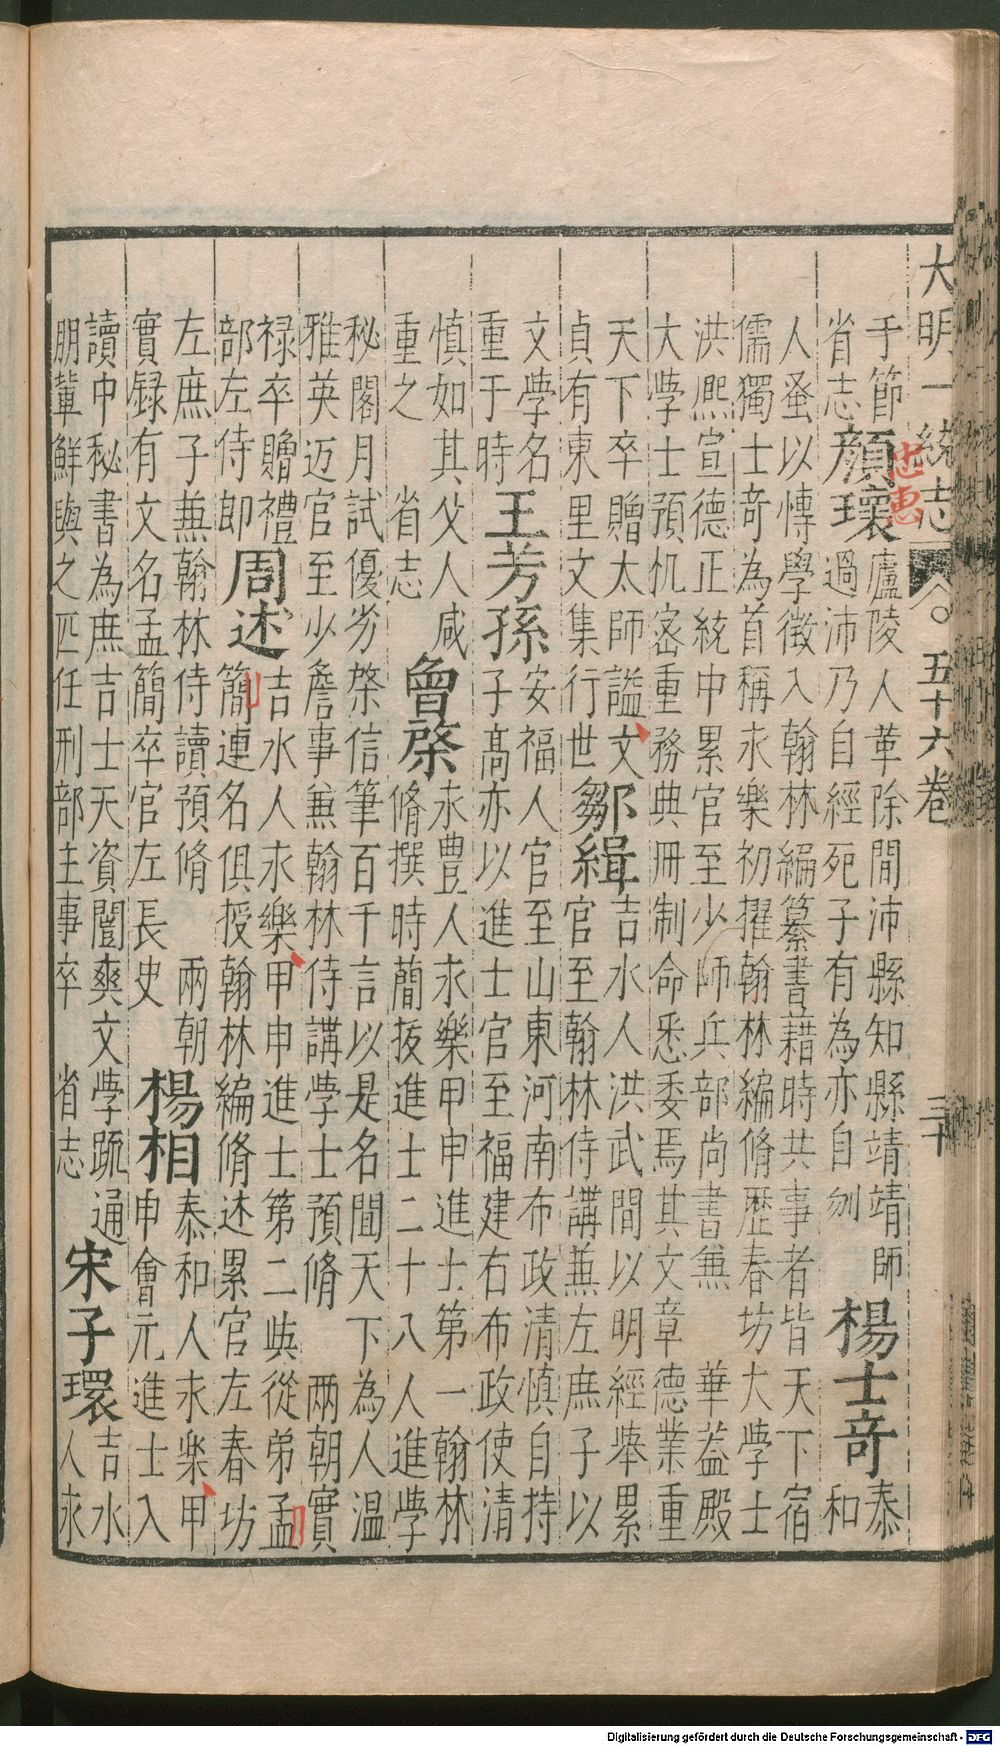 大明一統志 八〇 五十六卷 三十
忠惠
于節
省志
顔瓌
廬陵人革除間沛縣知縣靖靖師
過沛乃自經死子有為亦自刎
楊士竒
泰
和
人蚤以博學徵入翰林編纂書籍時共事者皆天下宿
儒獨士竒為首稱永樂初擢翰林編脩歷春坊大學士
洪熈宣德正統中累官至少師兵部尚書兼 華蓋殿
大學士預机宻重務典冊制命悉委焉其文章德業重
天下卒贈太師謚文
貞有東里文集行世
鄒緝
吉水人洪武間以明經舉累
官至翰林侍講兼左庶子以
文學名
重于時
王芳孫
安福人官至山東河南布政清慎自持
子髙亦以進士官至福建右布政使清
慎如其父人咸
重之 省志
曾棨
永豊人永樂甲申進士第一翰林
脩撰時蕳拔進士二十八人進學
秘閣月試優劣棨信筆百千言以是名聞天下為人温
雅英迈官至少詹事兼翰林侍講學士預脩 兩朝實
禄卒贈禮
部左侍郎
周述
吉水人永樂甲申進士第二與從弟孟
簡連名俱授翰林編脩述累官左春坊
左庶子兼翰林侍讀預脩 兩朝
實録有文名孟簡卒官左長史
楊相
泰和人永樂甲
申會元進士入
讀中秘書為庶吉士天資闓爽文學踈通
朋軰鮮與之匹任刑部主事卒 省志
宋子環
吉水
人永
Digitalisierung gefördert durch die Deutsche Forschungsgemeinschaft - DFG